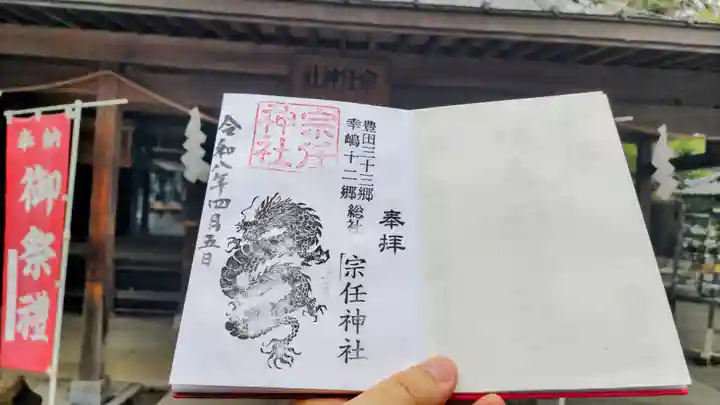 宗任神社
奉納
御祭禮
豊田三十三郷
幸嶋十二郷
総社
奉拝
宗任神社
宗任
神社
令和八年四月五日